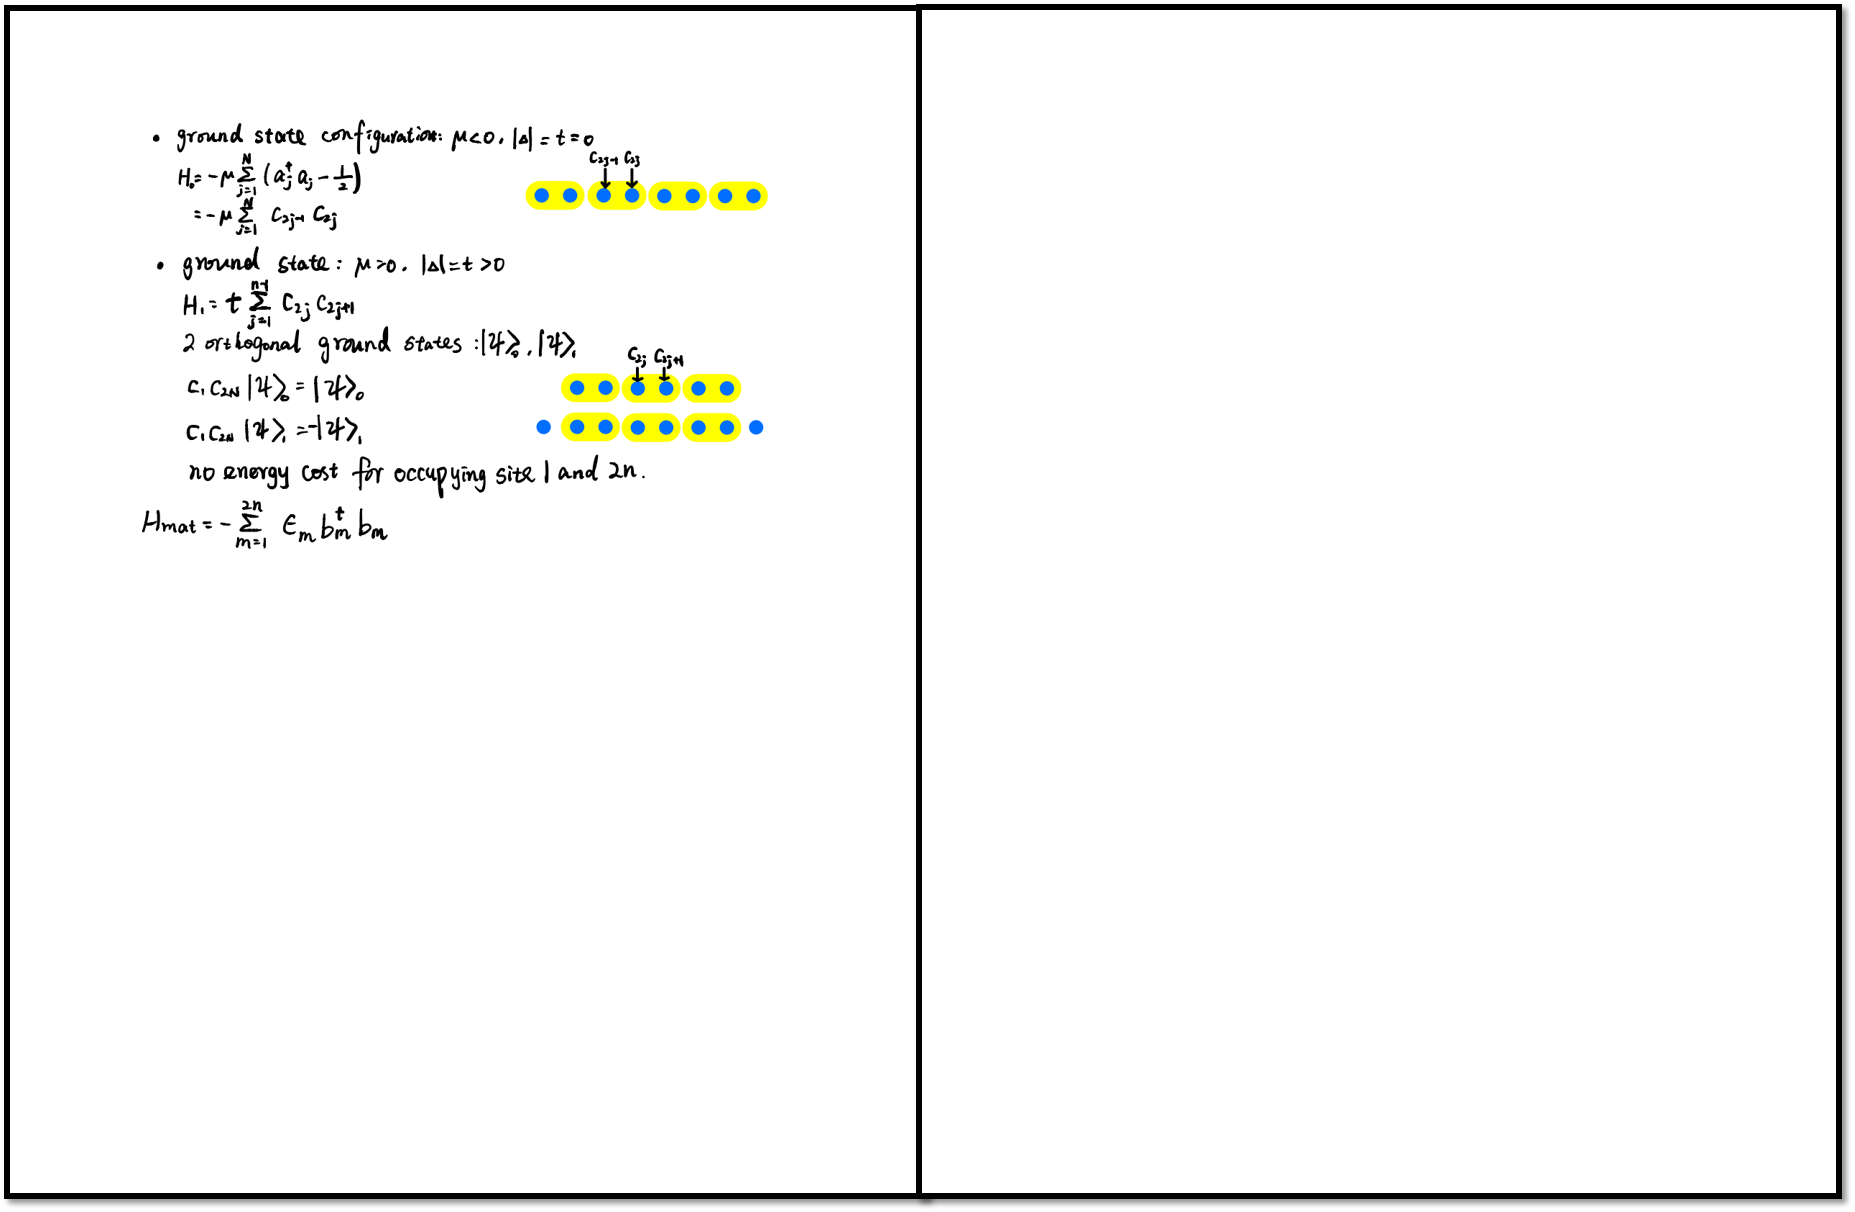 • ground state configuration: μ<0, |Δ| = t = 0
H₀ = -μ ∑_{j=1}^{N} (a_j^† a_j - 1/2)
C_{2j-1} C_{2j}
= -μ ∑_{j=1}^{N} C_{2j-1} C_{2j}
• ground state: μ>0, |Δ| = t >0
H₁ = t ∑_{j=1}^{n-1} C_{2j} C_{2j+1}
2 orthogonal ground states: |ψ⟩₀, |ψ⟩₁
C_{2j} C_{2j+1}
C₁ C_{2N} |ψ⟩₀ = |ψ⟩₀
C₁ C_{2N} |ψ⟩₁ = -|ψ⟩₁
no energy cost for occupying site 1 and 2n.
H_{mat} = - ∑_{m=1}^{2n} ϵ_m b_m^† b_m